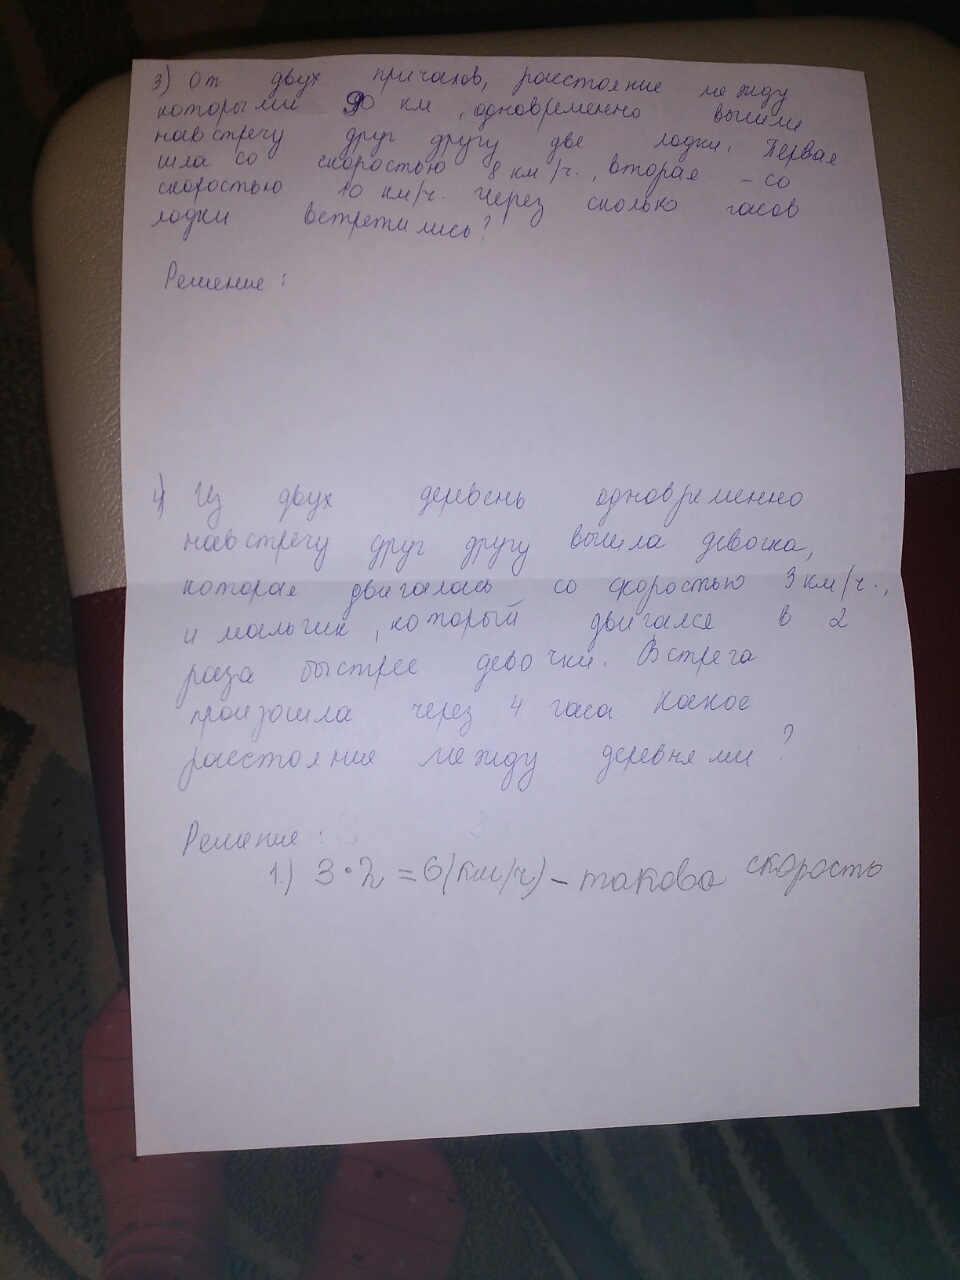 3) От двух причалов, расстояние между
которыми 90 км, одновременно вышли
навстречу друг другу две лодки. Первая
шла со скоростью 8 км/ч., вторая – со
скоростью 10 км/ч. Через сколько часов
лодки встретились?
Решение:
4) Из двух деревень одновременно
навстречу друг другу вышла девочка,
которая двигалась со скоростью 3 км/ч.,
и мальчик, который двигался в 2
раза быстрее девочки. Встреча
произошла через 4 часа. Какое
расстояние между деревнями?
Решение:
1.) 3·2=6(км/ч) – такова скорость